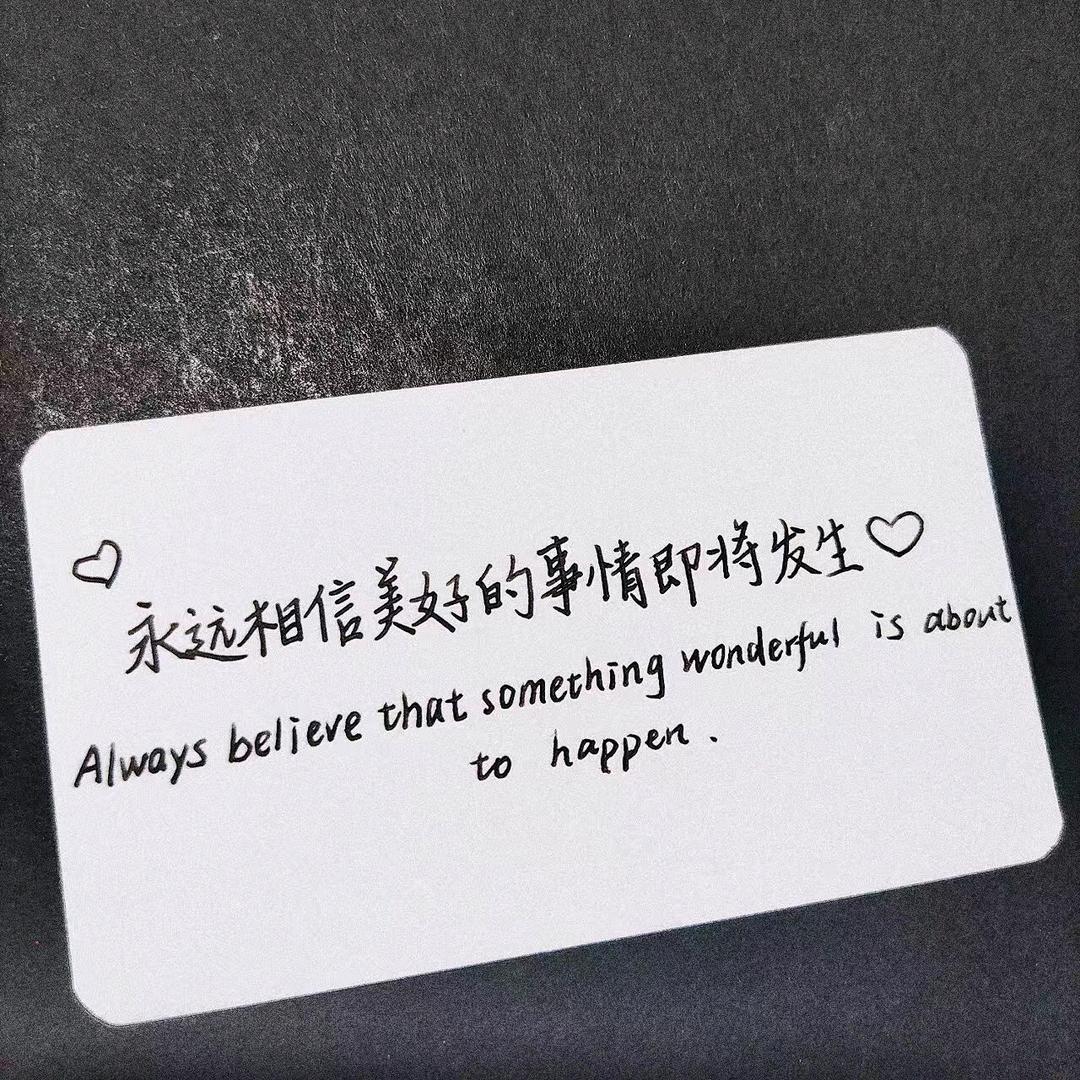 永远相信美好的事情即将发生
Always believe that something wonderful is about
to happen.